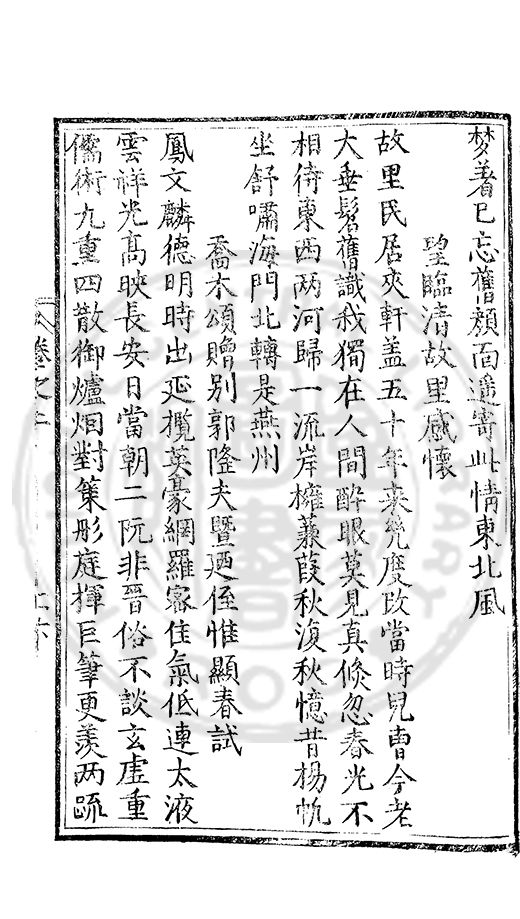 梦着已忘舊顏面遥寄此情東北風
望臨清故里感懷
故里民居夾軒盖五十年来幾度改當時兒曹今老
大垂髫舊識我獨在人間醉眼莫見真倏忽春光不
相待東西兩河歸一流岸擁蒹葭秋復秋憶昔揚帆
坐舒嘯海門北轉是燕州
喬木頌贈别郭隆夫暨廼侄惟顯春試
鳳文麟德明時出延攬英豪網羅宻佳氣低連太液
雲祥光髙映長安日當朝二阮非晉俗不談玄虚重
儒術九重四散御爐烟對策彤庭揮巨筆更羡兩疏
卷之二